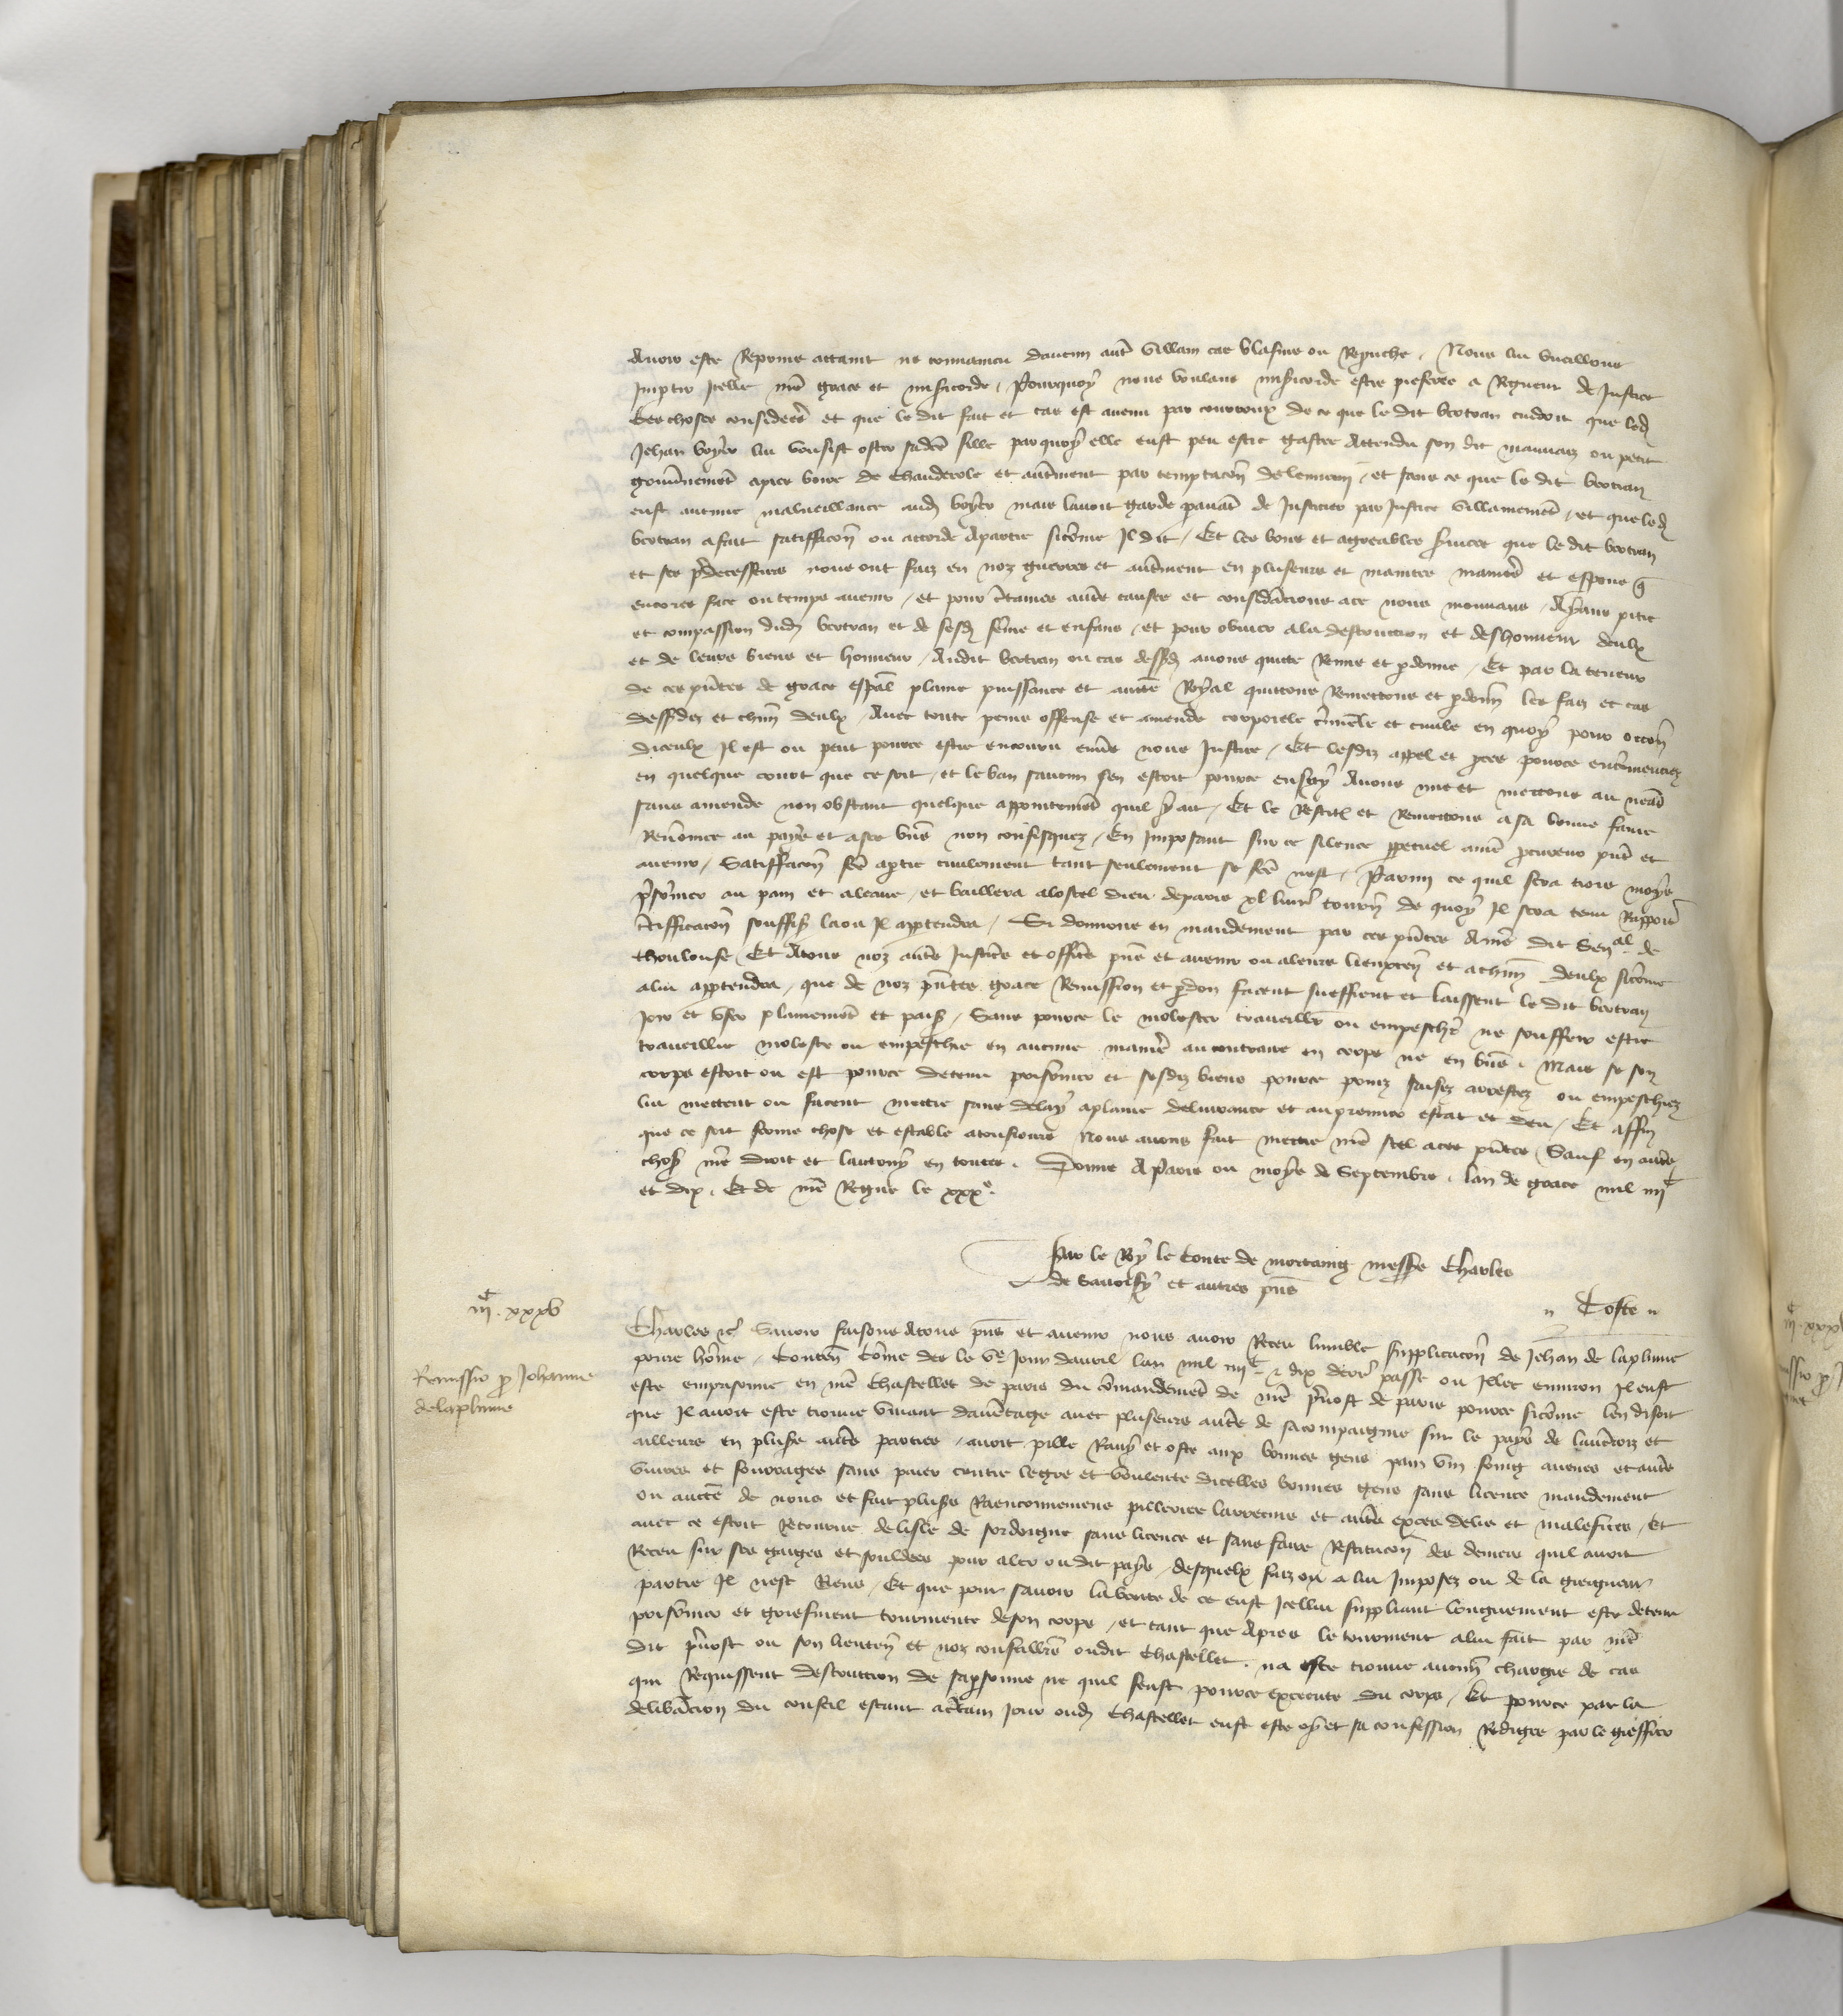 Avoir este Reprins attaint ne convaincu daucun autre villain cas blasme ou Reprouche. Nous lui vueillons
Impartir Icelle nr̃e grace et misericorde. Pourquoy nous voulans misericorde estre preferee a Rigueur de Justice
Ces choses considerees et que le dit fait et cas est avenu par courroux de ce que le dit bertran cuidoit que led
Jehan boyer lui voulsist oster sadicte fille par quoy elle eust peu estre gastee Attendu son dit mauvaiz ou petit
gouvernement apres boire de Chauderole et autrement par temptacion de lennemi / et sans ce que le dit bertran
eust aucune malveillance aud boyer mais lavoit garde paravant de Justicier par Justice villainement / et que led
bertran a fait satisffacion ou accorde a partie sicomme Il dit / Et les bons et agreables services que le dit bertran
et ses predecesseurs nous ont faiz en noz guerres et autrement en pluseurs et maintes manieres et esperons que
encores face ou temps avenir / et pour certaines autres causes et consideracions a ce nous mouvans / Ayans pitie
et compassion dud bertran et de sesd femme et enfans / et pour obvier a la destruction et deshonneur deulx
et de leurs biens et honneur / Audit bertran ou cas dessusd avons quitte Remis et pardonne / Et par la teneur
de ces presentes de grace especial plaine puissance et auctorite Royal quittons Remettons et pardonnons les faiz et cas
dessusdiz et chascun deulx / Avec toute peine offense et amende corporele criminele et civile en quoy pour occasion
diceulx Il est ou peut pource estre encouru envers nous Justice / Et lesdiz appel et proces pource encommenciez
en quelque court que ce soit / et le ban saucun sen estoit pource ensuy Avons mis et mettons au neant
sans amende non obstant quelque appointement quil y ait / Et le Restituons et Remettons a sa bonne fame
Renommee au pays et a ses biens non confisquez / En Imposant sur ce silence perpetuel a nr̃e procureur present et
avenir / Satisffacion faicte a partie civilement tant seulement se faicte nest / Parmi ce quil sera trois moys
prisonnier au pain et a leaue / et baillera a lostel dieu de paris xl livres tournois de quoy Il sera tenu Rapporter
certifficacion souffisant la ou Il appartendra / Si donnons en mandement par ces presentes A nr̃e dit Seneal de
thoulouse / Et A tous noz autres Justiciers et officiers presens et avenir ou a leurs lieuxtenans et a chascun deulx sicomme
a lui appartendra / que de noz presentes grace Remission et pardon facent sueffrent et laissent le dit bertran
Joir et user plainement et paisiblement / Sans pource le molester travailler ou empescher ne souffrir estre
travaillie moleste ou empeschie en aucune maniere au contraire en corps ne en biens. Mais se son
corps estoit ou est pource detenu prisonnier et sesdiz biens pource prins saisiz arrestez ou empeschiez
lui mettent ou facent mettre sans delay a plaine delivrance et au premier estat et deu / Et affin
que ce soit ferme chose et estable a tousjours Nous avons fait mettre nr̃e seel a ces presentes Sauf en autres
choses nr̃e droit et lautruy en toutes. Donne A Paris ou moys de Septembre. lan de grace mil iiijᶜ
et dix. Et de nr̃e Regne le xxxᵉ.
Par le Roy le Conte de mortaing messire Charles
de Savoisy et autres presens
Coste
iijᶜ. xxxv
Remissio pro Johanne
de la plume
Charles etc Savoir faisons A tous presens et avenir nous avoir Receu lumble supplicacion de Jehan de la plume
povre homme / Contenant Comme des le ve Jour davril lan mil iiijᶜ et dix derrenier passe ou Illec environ Il eust
este emprisonne en nr̃e Chastellet de paris du commandement de nr̃e prevost de paris pource sicomme len disoit
que Il avoit este trouve vivant davantage avec pluseurs autres de sa compaignie sur le pays de lauxerrois et
ailleurs en pluseurs autres parties / avoit pille Ravy et oste aux bonnes gens pain vin foing avenes et autres
vivres et fourrages sans paier contre le gre et voulente dicelles bonnes gens sans licence mandement
ou auctorite de nous et fait pluseurs Raenconnemens pilleries larrecins et autres exces deliz et malefices / Et
avec ce estoit Retourne de lisle de sardaigne sans licence et sans faire Restitucion des deniers quil avoit
Receu sur ses gaiges et souldees pour aler oudit pays / desquelx faiz ou a lui Imposez ou de la greigneur
partie Il nest Riens / Et que pour savoir la verite de ce eust Icellui suppliant longuement este detenu
prisonnier et griefment tourmente de son corps / et tant que Apres le tourment a lui fait par nr̃e
dit prevost ou son lieutenant et noz conseilliers oudit Chastellet. na este trouve aucunement chargie de cas
qui Requissent destruction de sa personne ne quil feust pource execute du corps / Et pource par la
deliberacion du conseil estant a certain Jour oud Chastellet eust este oy et sa confession Redigee par le greffier